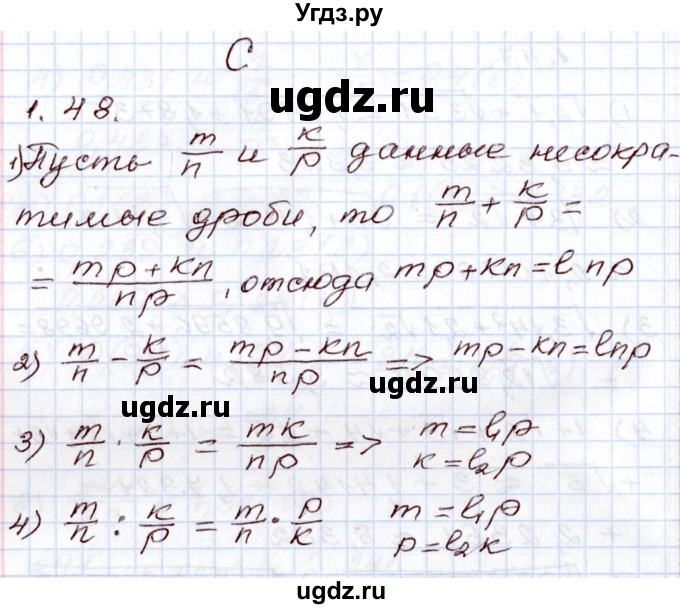 Угдз.ру
С
ugdz.ru
1.48.
1) Пусть m/n и k/p данные несокра-
тимые дроби, то m/n + k/p =
= (mp+kn)/(np), отсюда mp+kn=lnp
ugdz.ru
2) m/n - k/p = (mp-kn)/(np) => mp-kn=lnp
ugdz.ru
3) m/n · k/p = mk/(np) => m=l₁p
k=l₂p
4) m/n : k/p = m/n · p/k m=l₁p
p=l₂k
ugdz.ru